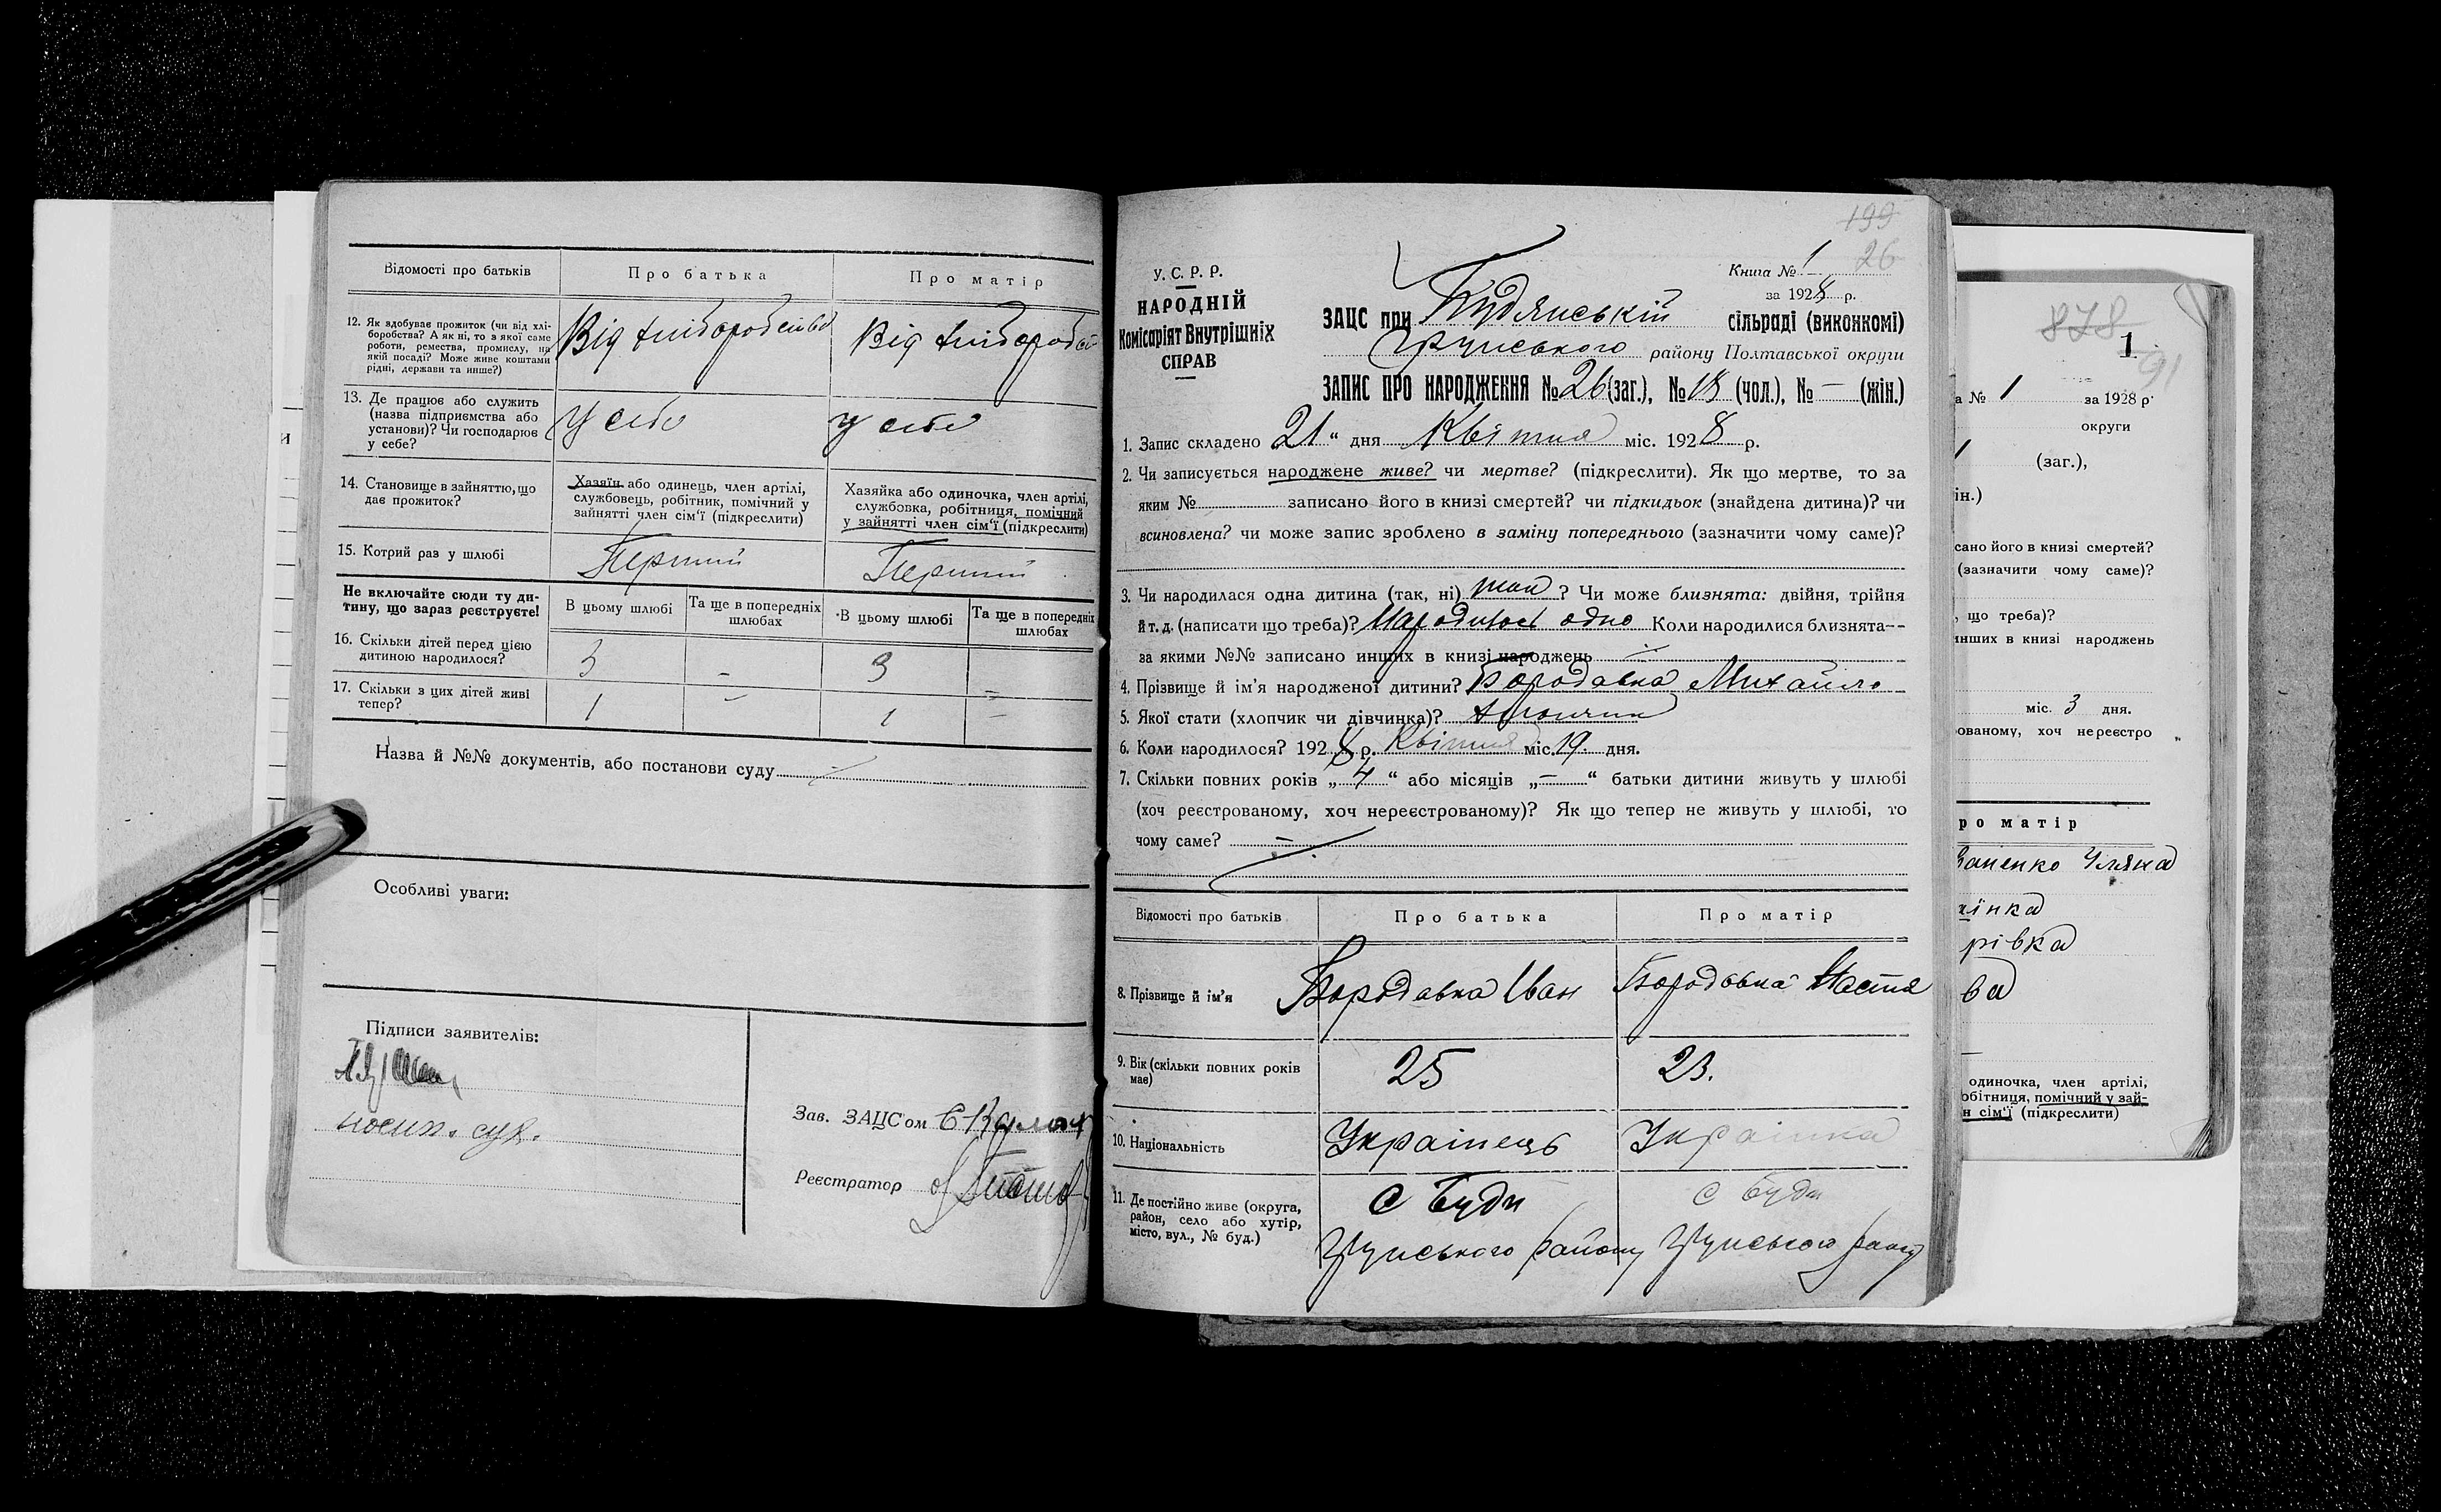 Відомості про батьків
Про батька
Про матір
12. Як здобуває прожиток (чи від хлі-
боробства? А як ні, то з якої саме
роботи, ремества, промислу, на
якій посаді? Може живе коштами
рідні, держави та инше?)
Від хліборобства
Від хлібороб
13. Де працює або служить
(назва підприємства або
установи)? Чи господарює
у себе?
У себе
У себе
14. Становище в зайняттю, що
дає прожиток?
Хазяїн або одинець, член артілі,
службовець, робітник, помічний у
зайнятті член сім'ї (підкреслити)
Хазяйка або одиночка, член артілі,
службовка, робітниця, помічний
у зайнятті член сім'ї (підкреслити)
15. Котрий раз у шлюбі
Перший
Перший
Не включайте сюди ту ди-
тину, що зараз реєструєте!
В цьому шлюбі
Та ще в попередніх
шлюбах
В цьому шлюбі
Та ще в попередніх
шлюбах
16. Скільки дітей перед цією
дитиною народилося?
3 - 3 -
17. Скільки з цих дітей живі
тепер?
1 - 1 -
Назва й №№ документів, або постанови суду -
Особливі уваги:
Підписи заявителів:
Зав. ЗАЦС'ом
Реєстратор
199
26
У. С. Р. Р.
НАРОДНІЙ
Комісаріят Внутрішніх
СПРАВ
Книга № 1
за 1928 р.
ЗАЦС при Будянській сільраді (виконкомі)
Грунського району Полтавської округи
ЗАПИС ПРО НАРОДЖЕННЯ № 26 (заг.), № 18 (чол.), № — (жін.)
1. Запис складено 21 " дня Квітня міс. 1928 р.
2. Чи записується народжене живе? чи мертве? (підкреслити). Як що мертве, то за
яким № записано його в книзі смертей? чи підкидьок (знайдена дитина)? чи
всиновлена? чи може запис зроблено в заміну попереднього (зазначити чому саме)?
3. Чи народилася одна дитина (так, ні) так ? Чи може близнята: двійня, трійня
й т. д. (написати що треба)? Народилось одно Коли народилися близнята—
за якими №№ записано инших в книзі народжень -
4. Прізвище й ім'я народженої дитини? Бородавка Михайло
5. Якої стати (хлопчик чи дівчинка)? хлопчик
6. Коли народилося? 1928 р. Квітня міс. 19 дня.
7. Скільки повних років „ 4 “ або місяців „ — “ батьки дитини живуть у шлюбі
(хоч реєстрованому, хоч нереєстрованому)? Як що тепер не живуть у шлюбі, то
чому саме? -
Відомості про батьків
Про батька
Про матір
8. Прізвище й ім'я
Бородавка Іван
Бородавка Настя
9. Вік (скільки повних років
має)
25
23.
10. Національність
Українець
Українка
11. Де постійно живе (округа,
район, село або хутір,
місто, вул., № буд.)
с Буди
Грунського району
с Буди
Грунського району
878
1
91
а № 1 за 1928 р.
округи
(заг.),
ін.)
сано його в книзі смертей?
(зазначити чому саме)?
, що треба)?
нших в книзі народжень
міс. 3 дня.
ованому, хоч нереєстро
ро матір
Уляна
їнка
рівка
ва
одиночка, член артілі,
обітниця, помічний у зай-
н сім'ї (підкреслити)